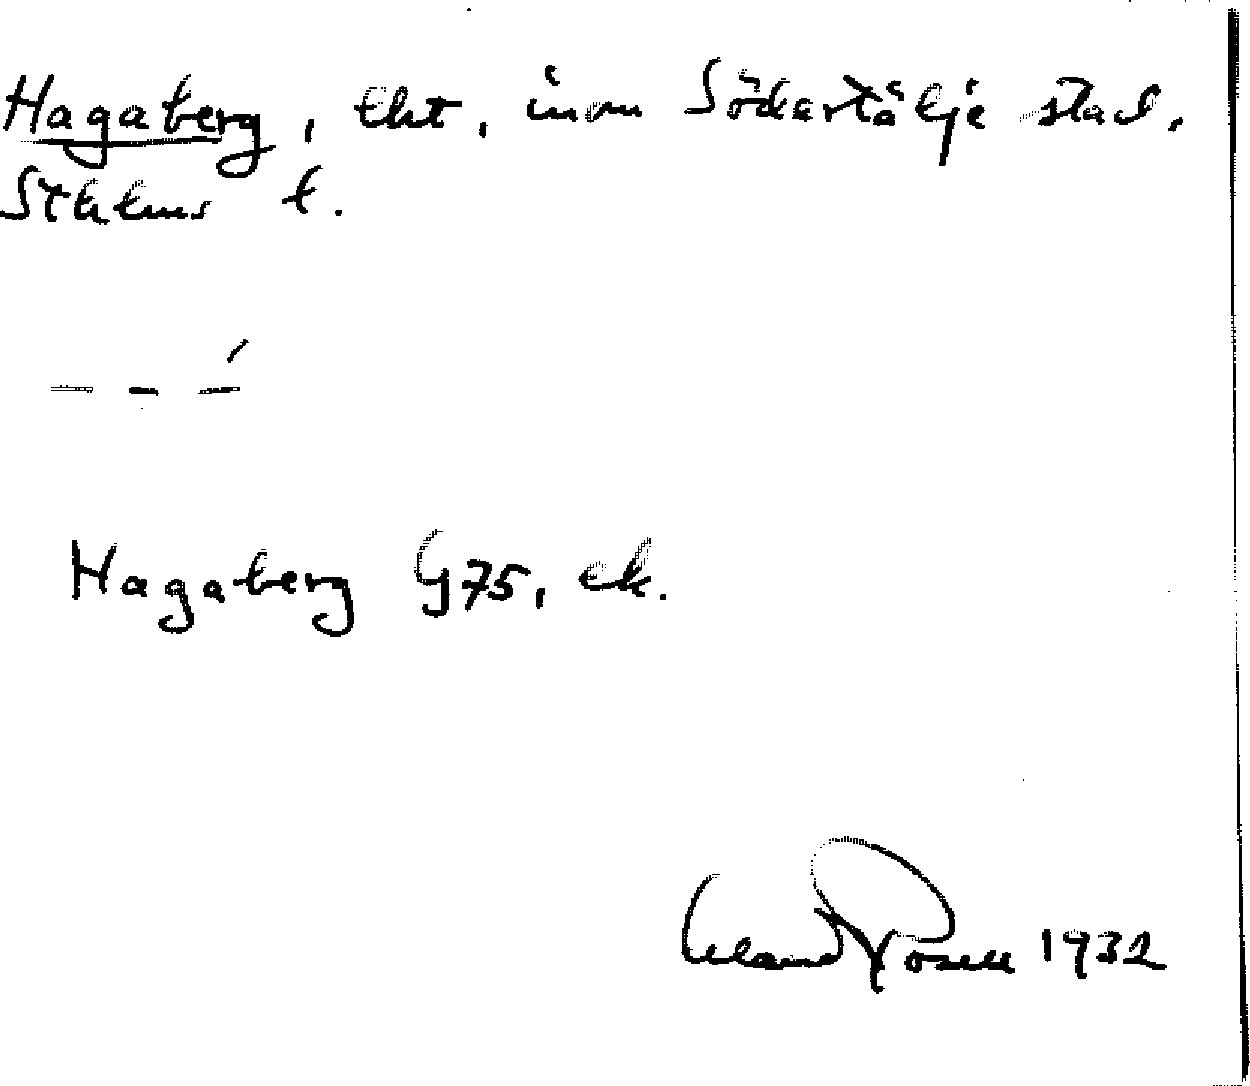 Hagaberg, lht, inom Södertälje stad,
Sthlms l.
Hagaberg G75, ek.
1932